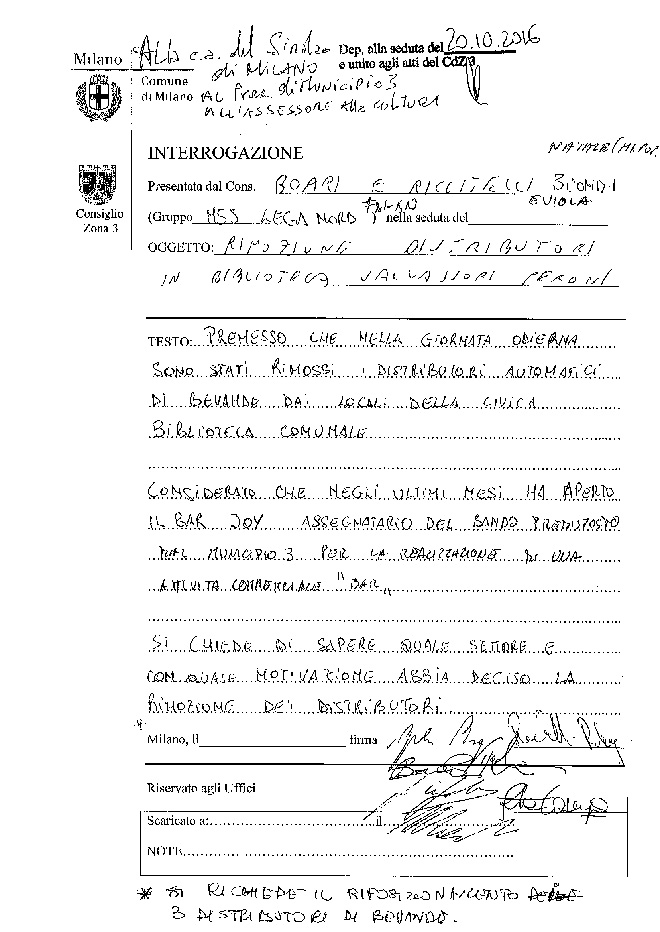 Milano
Comune
di Milano
Alla c.a. del Sindaco
di MILANO
AL Pres. di Municipio 3
ALL'ASSESSORE alla CULTURA
Dep. alla seduta del 20.10.2016
e unito agli atti del CdZ 3
INTERROGAZIONE
Consiglio
Zona 3
Presentata dal Cons. BOARI E RICCITELLI BIONDI
E VIOLA
(Gruppo M5S LEGA NORD ) nella seduta del
OGGETTO: RIMOZIONE DISTRIBUTORI
IN BIBLIOTECA VALVASSORI PERONI
TESTO: PREMESSO CHE NELLA GIORNATA ODIERNA
SONO STATI RIMOSSI I DISTRIBUTORI AUTOMATICI
DI BEVANDE DAI LOCALI DELLA CIVICA
BIBLIOTECA COMUNALE
CONSIDERATO CHE NEGLI ULTIMI MESI HA APERTO
IL BAR JOY ASSEGNATARIO DEL BANDO PREDISPOSTO
DAL MUNICIPIO 3 PER LA REALIZZAZIONE DI UNA
ATTIVITA COMMERCIALE "BAR"
SI CHIEDE DI SAPERE QUALE SETTORE E
CON QUALE MOTIVAZIONE ABBIA DECISO LA
RIMOZIONE DEI DISTRIBUTORI
Milano, lì firma
Riservato agli Uffici
Scaricato a: il
NOTE
* SI RICHIEDE IL RIPOSIZIONAMENTO
3 DISTRIBUTORI DI BEVANDE.